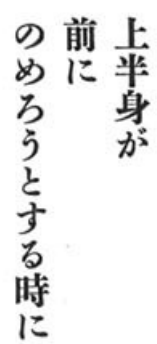 上半身が
前に
のめろうとする時に